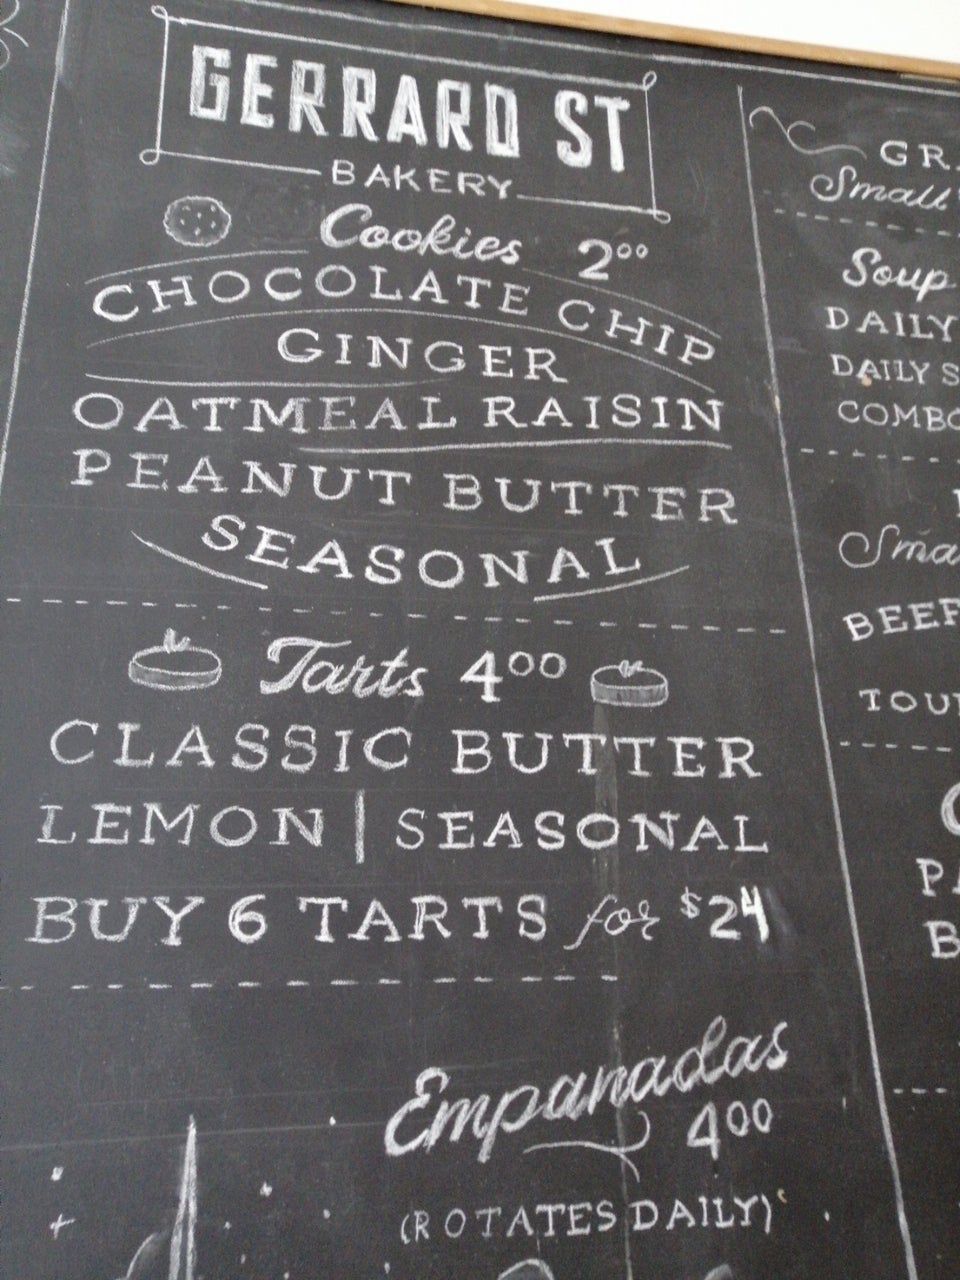 GERRARD ST
BAKERY
Cookies 2⁰⁰
CHOCOLATE CHIP
GINGER
OATMEAL RAISIN
PEANUT BUTTER
SEASONAL
Tarts 4⁰⁰
CLASSIC BUTTER
LEMON | SEASONAL
BUY 6 TARTS for $24
Empanadas
4⁰⁰
(ROTATES DAILY)
Small
Soup
DAILY
DAILY S
COMBO
BEEF